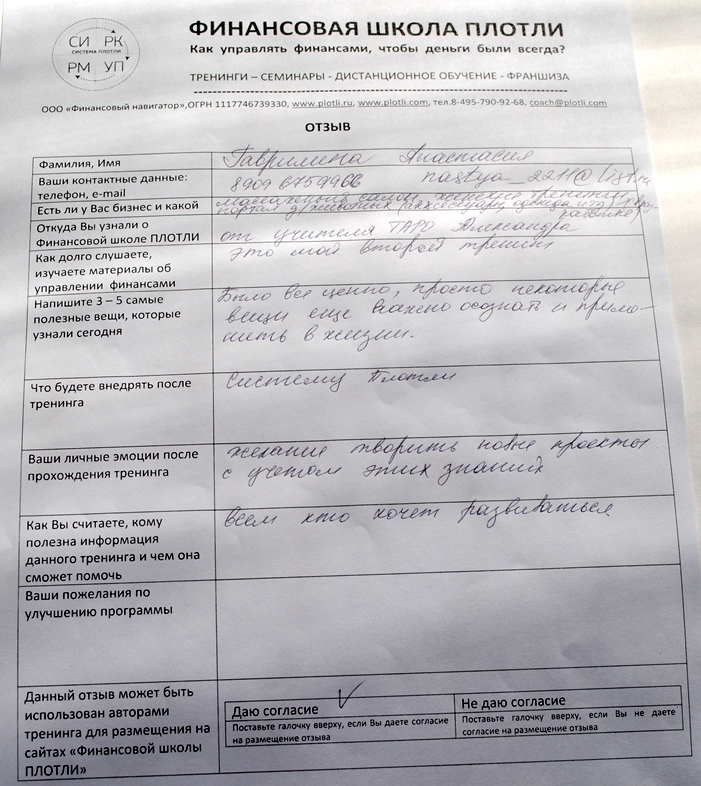 СИ РК
СИСТЕМА ПЛОТЛИ
РМ УП
ФИНАНСОВАЯ ШКОЛА ПЛОТЛИ
Как управлять финансами, чтобы деньги были всегда?
ТРЕНИНГИ – СЕМИНАРЫ - ДИСТАНЦИОННОЕ ОБУЧЕНИЕ - ФРАНШИЗА
ООО «Финансовый навигатор»,ОГРН 1117746739330, www.plotli.ru, www.plotli.com, тел.8-495-790-92-68, coach@plotli.com
ОТЗЫВ
Фамилия, Имя
Гаврилина Анастасия
Ваши контактные данные:
телефон, e-mail
8909 6759966 nastya_2211@list.ru
Есть ли у Вас бизнес и какой
массажный салон, женские тренинги
портал д/животных (аксессуары, одежда и тд)
Откуда Вы узнали о
Финансовой школе ПЛОТЛИ
от учителя ТАРО Александра
Как долго слушаете,
изучаете материалы об
управлении финансами
это мой второй тренинг
Напишите 3 – 5 самые
полезные вещи, которые
узнали сегодня
Было все ценно, просто некоторые
вещи еще важно осознать и приме-
нить в жизни.
Что будете внедрять после
тренинга
Систему Плотли
Ваши личные эмоции после
прохождения тренинга
желание творить новые проекты
с учетом этих знаний
Как Вы считаете, кому
полезна информация
данного тренинга и чем она
сможет помочь
всем кто хочет развиваться.
Ваши пожелания по
улучшению программы
Данный отзыв может быть
использован авторами
тренинга для размещения на
сайтах «Финансовой школы
ПЛОТЛИ»
Даю согласие
Поставьте галочку вверху, если Вы даете согласие
на размещение отзыва
Не даю согласие
Поставьте галочку вверху, если Вы не даете
согласие на размещение отзыва